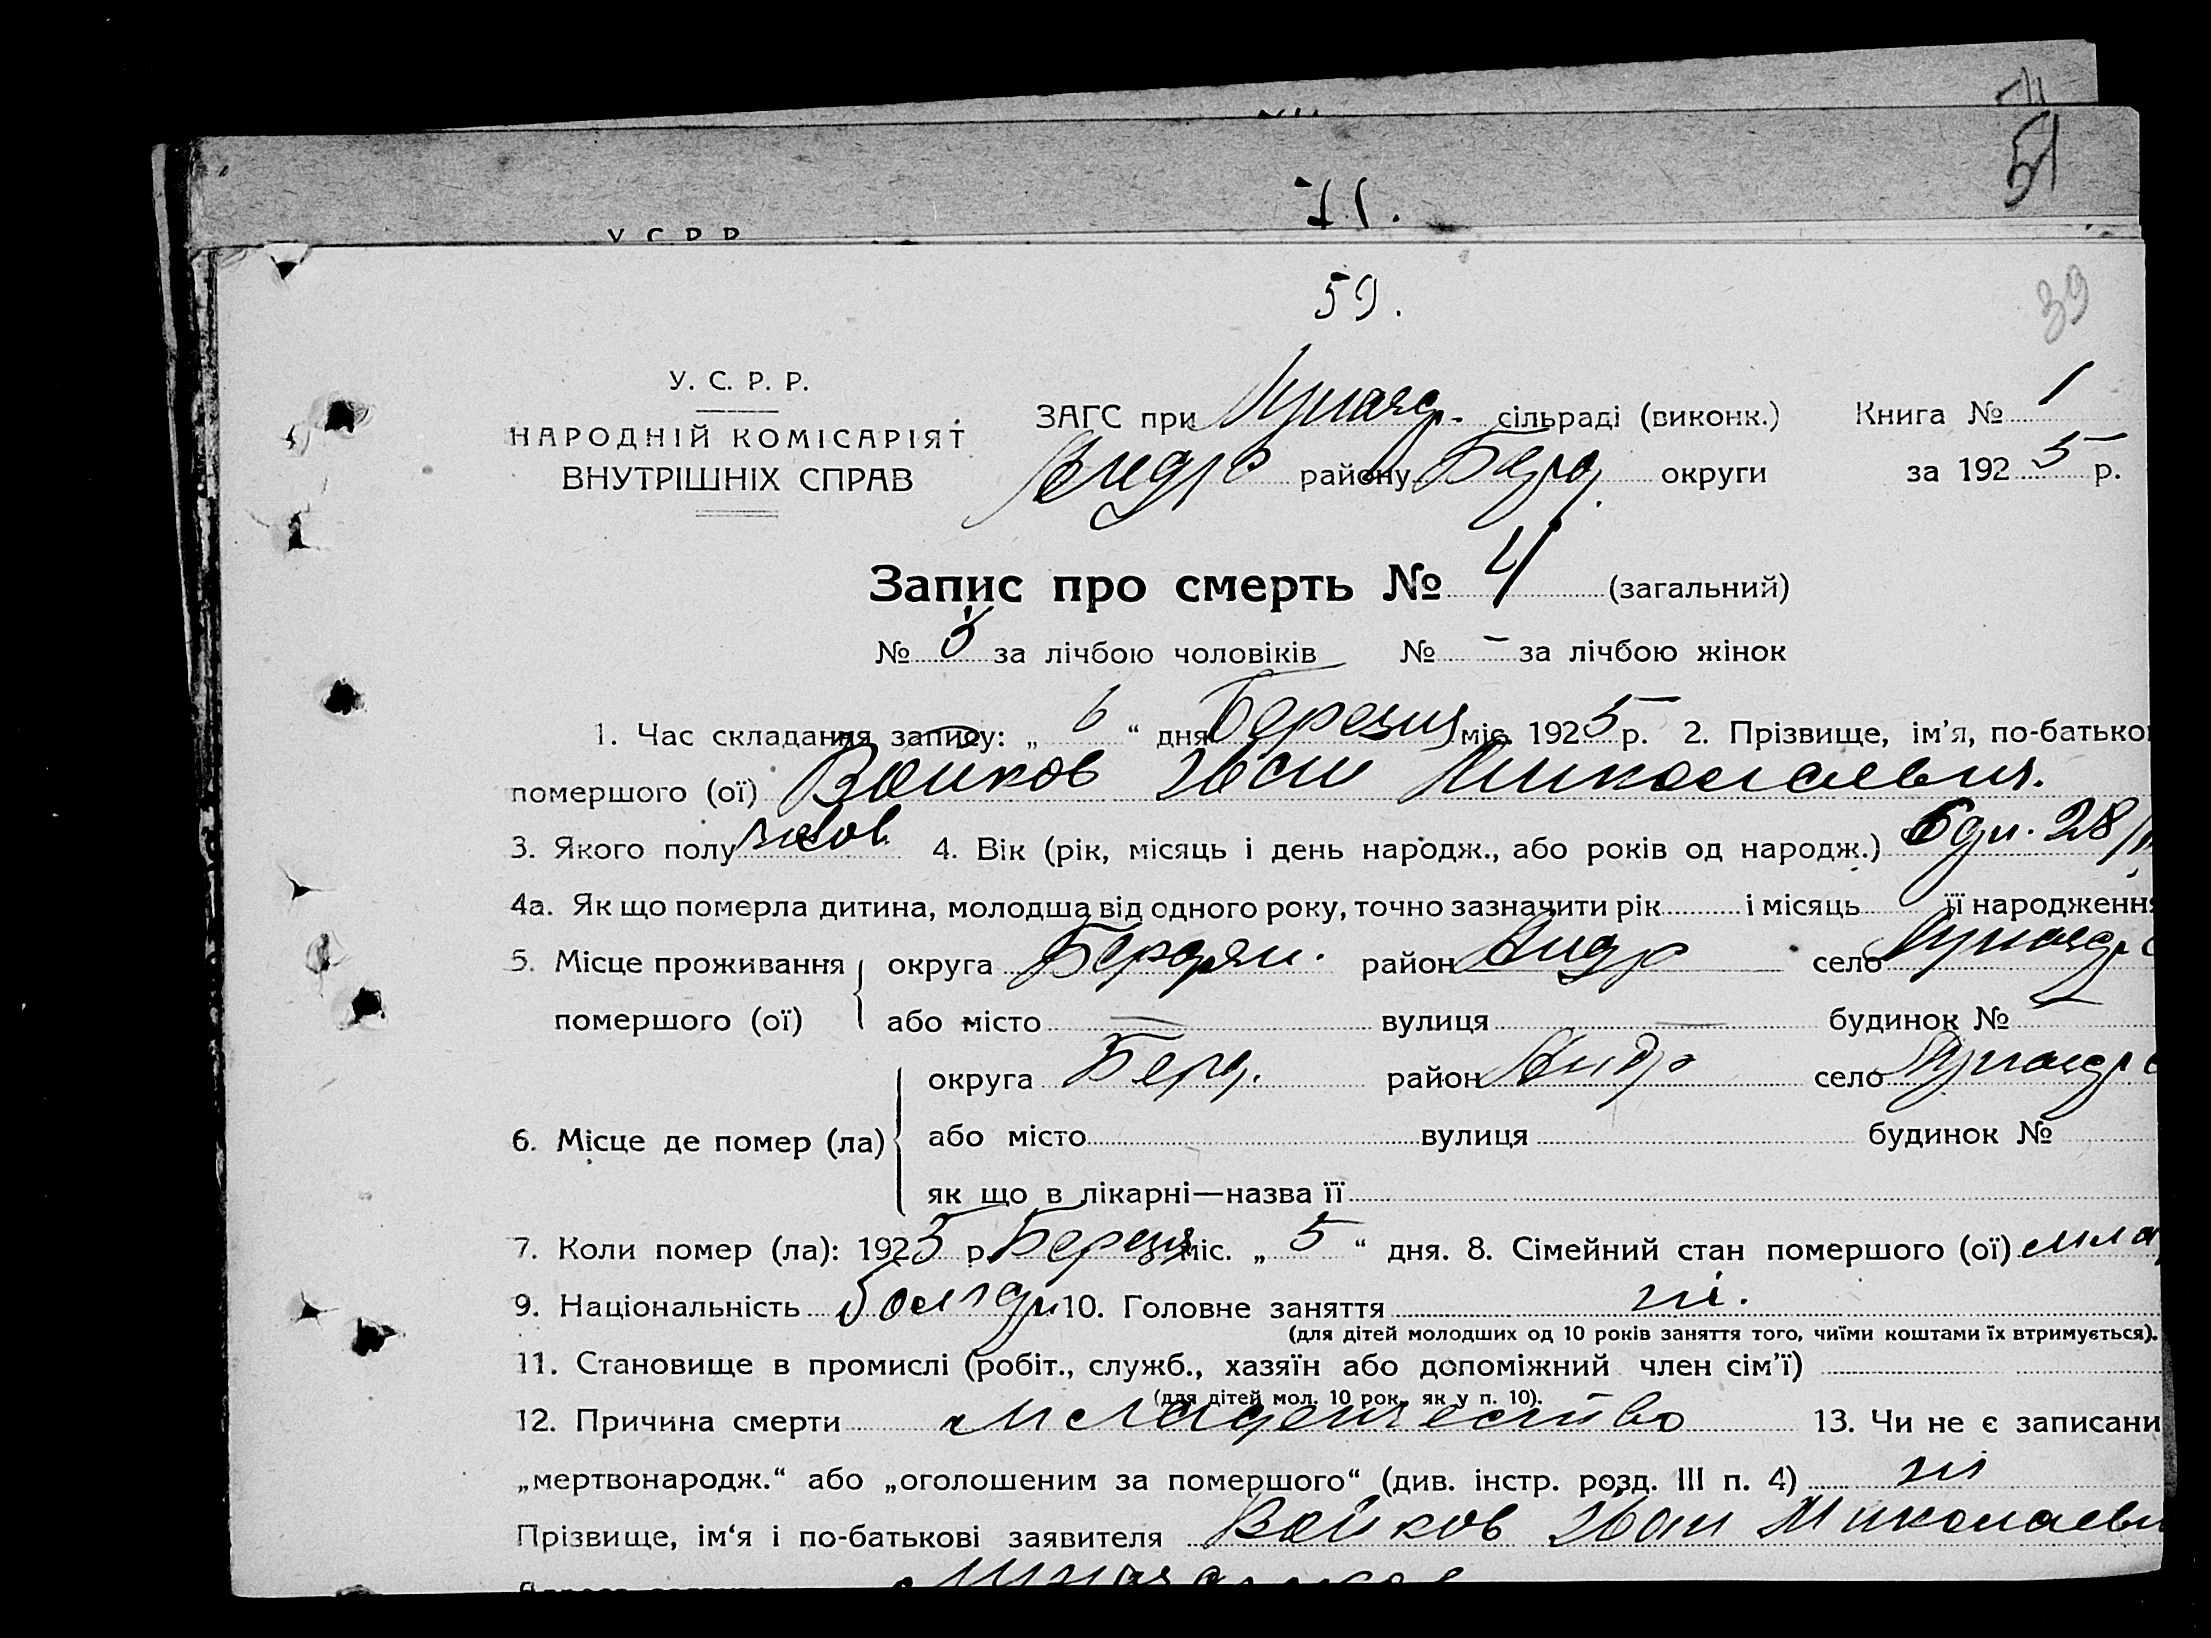 51
71.
У С Р Р
59.
39
У. С. Р. Р.
НАРОДНІЙ КОМІСАРІЯТ
ВНУТРІШНІХ СПРАВ
ЗАГС при сільраді (виконк.) Книга № 1
району Берд. округи за 1925 р.
Запис про смерть № 4 (загальний)
№ 3 за лічбою чоловіків № – за лічбою жінок
1. Час складання запису: „ 6 “ дня Березня міс. 1925 р. 2. Прізвище, ім'я, по-батько
помершого (ої) Войков Іван Миколаевич.
3. Якого полу 4. Вік (рік, місяць і день народж., або років од народж.) 6 дн. 28/
4а. Як що померла дитина, молодша від одного року, точно зазначити рік і місяць її народження
5. Місце проживання округа Бердян. район Андр село
помершого (ої) або місто — вулиця — будинок № —
округа Берд. район Андр село
6. Місце де помер (ла) або місто вулиця будинок №
як що в лікарні—назва її
7. Коли помер (ла): 1925 р. Березня міс. „ 5 “ дня. 8. Сімейний стан помершого (ої) мла
9. Національність болгар 10. Головне заняття ні.
(для дітей молодших од 10 років заняття того, чиїми коштами їх втримується).
11. Становище в промислі (робіт., служб., хазяїн або допоміжний член сім'ї)
(для дітей мол. 10 рок., як у п. 10).
12. Причина смерти младенчество 13. Чи не є записани
„мертвонародж.“ або „оголошеним за помершого“ (див. інстр. розд. III п. 4) ні
Прізвище, ім'я і по-батькові заявителя Войков Іван Миколаеви